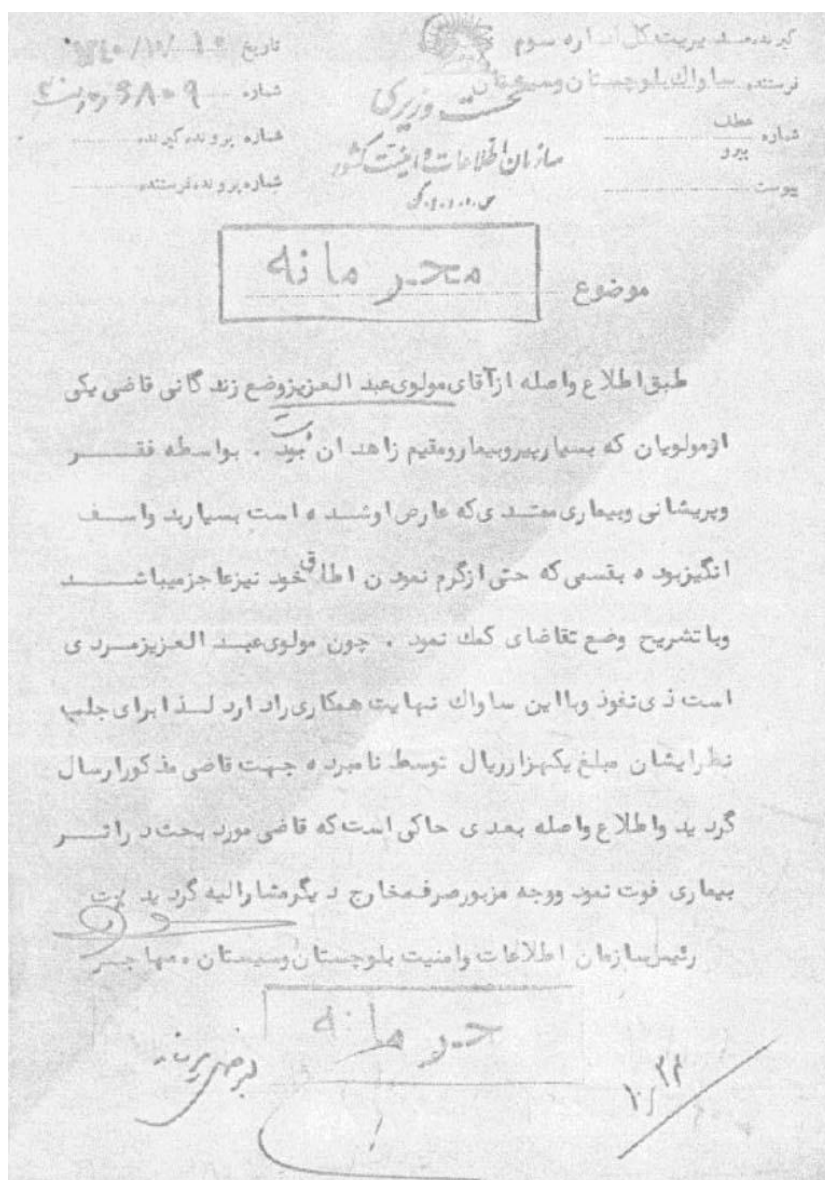 گیرنده مدیریت کل اداره سوم
فرستنده ساواك بلوچستان وسیستان
شماره عطف
پیرو
پیوست
نخست وزیری
سازمان اطلاعات و امنیت کشور
س.ا.و.ا.ك
تاریخ ۱۳۴۰/۱۰/۱۰
شماره ۳۸۰۹
شماره پرونده گیرنده
شماره پرونده فرستنده
موضوع
محرمانه
طبق اطلاع واصله ازآقای مولوی عبد العزیزوضع زندگانی قاضی یکی
ازمولویان که بسیارپیروبیمارومقیم زاهدان بود . بواسطه فقـــر
وپریشانی وبیماری ممتدی که عارض اوشده است بسیاربد واسف
انگیزبوده بقسمی که حتی ازگرم نمودن اطاق خود نیزعاجزمیباشـــد
وباتشریح وضع تقاضای کمك نمود . چون مولوی عبد العزیزمردی
است ذی نفوذ وبااین ساواك نهایت همکاری رادارد لذا برای جلب
نظرایشان مبلغ یکهزارریال توسط نامبرده جهت قاضی مذکورارسال
گردید واطلاع واصله بعدی حاکی است که قاضی مورد بحث دراثـــر
بیماری فوت نمود ووجه مزبورصرف مخارج دیگرمشارالیه گردید
رئیس سازمان اطلاعات وامنیت بلوچستان وسیستان . مهاجر
محرمانه
۱۰/۲۴